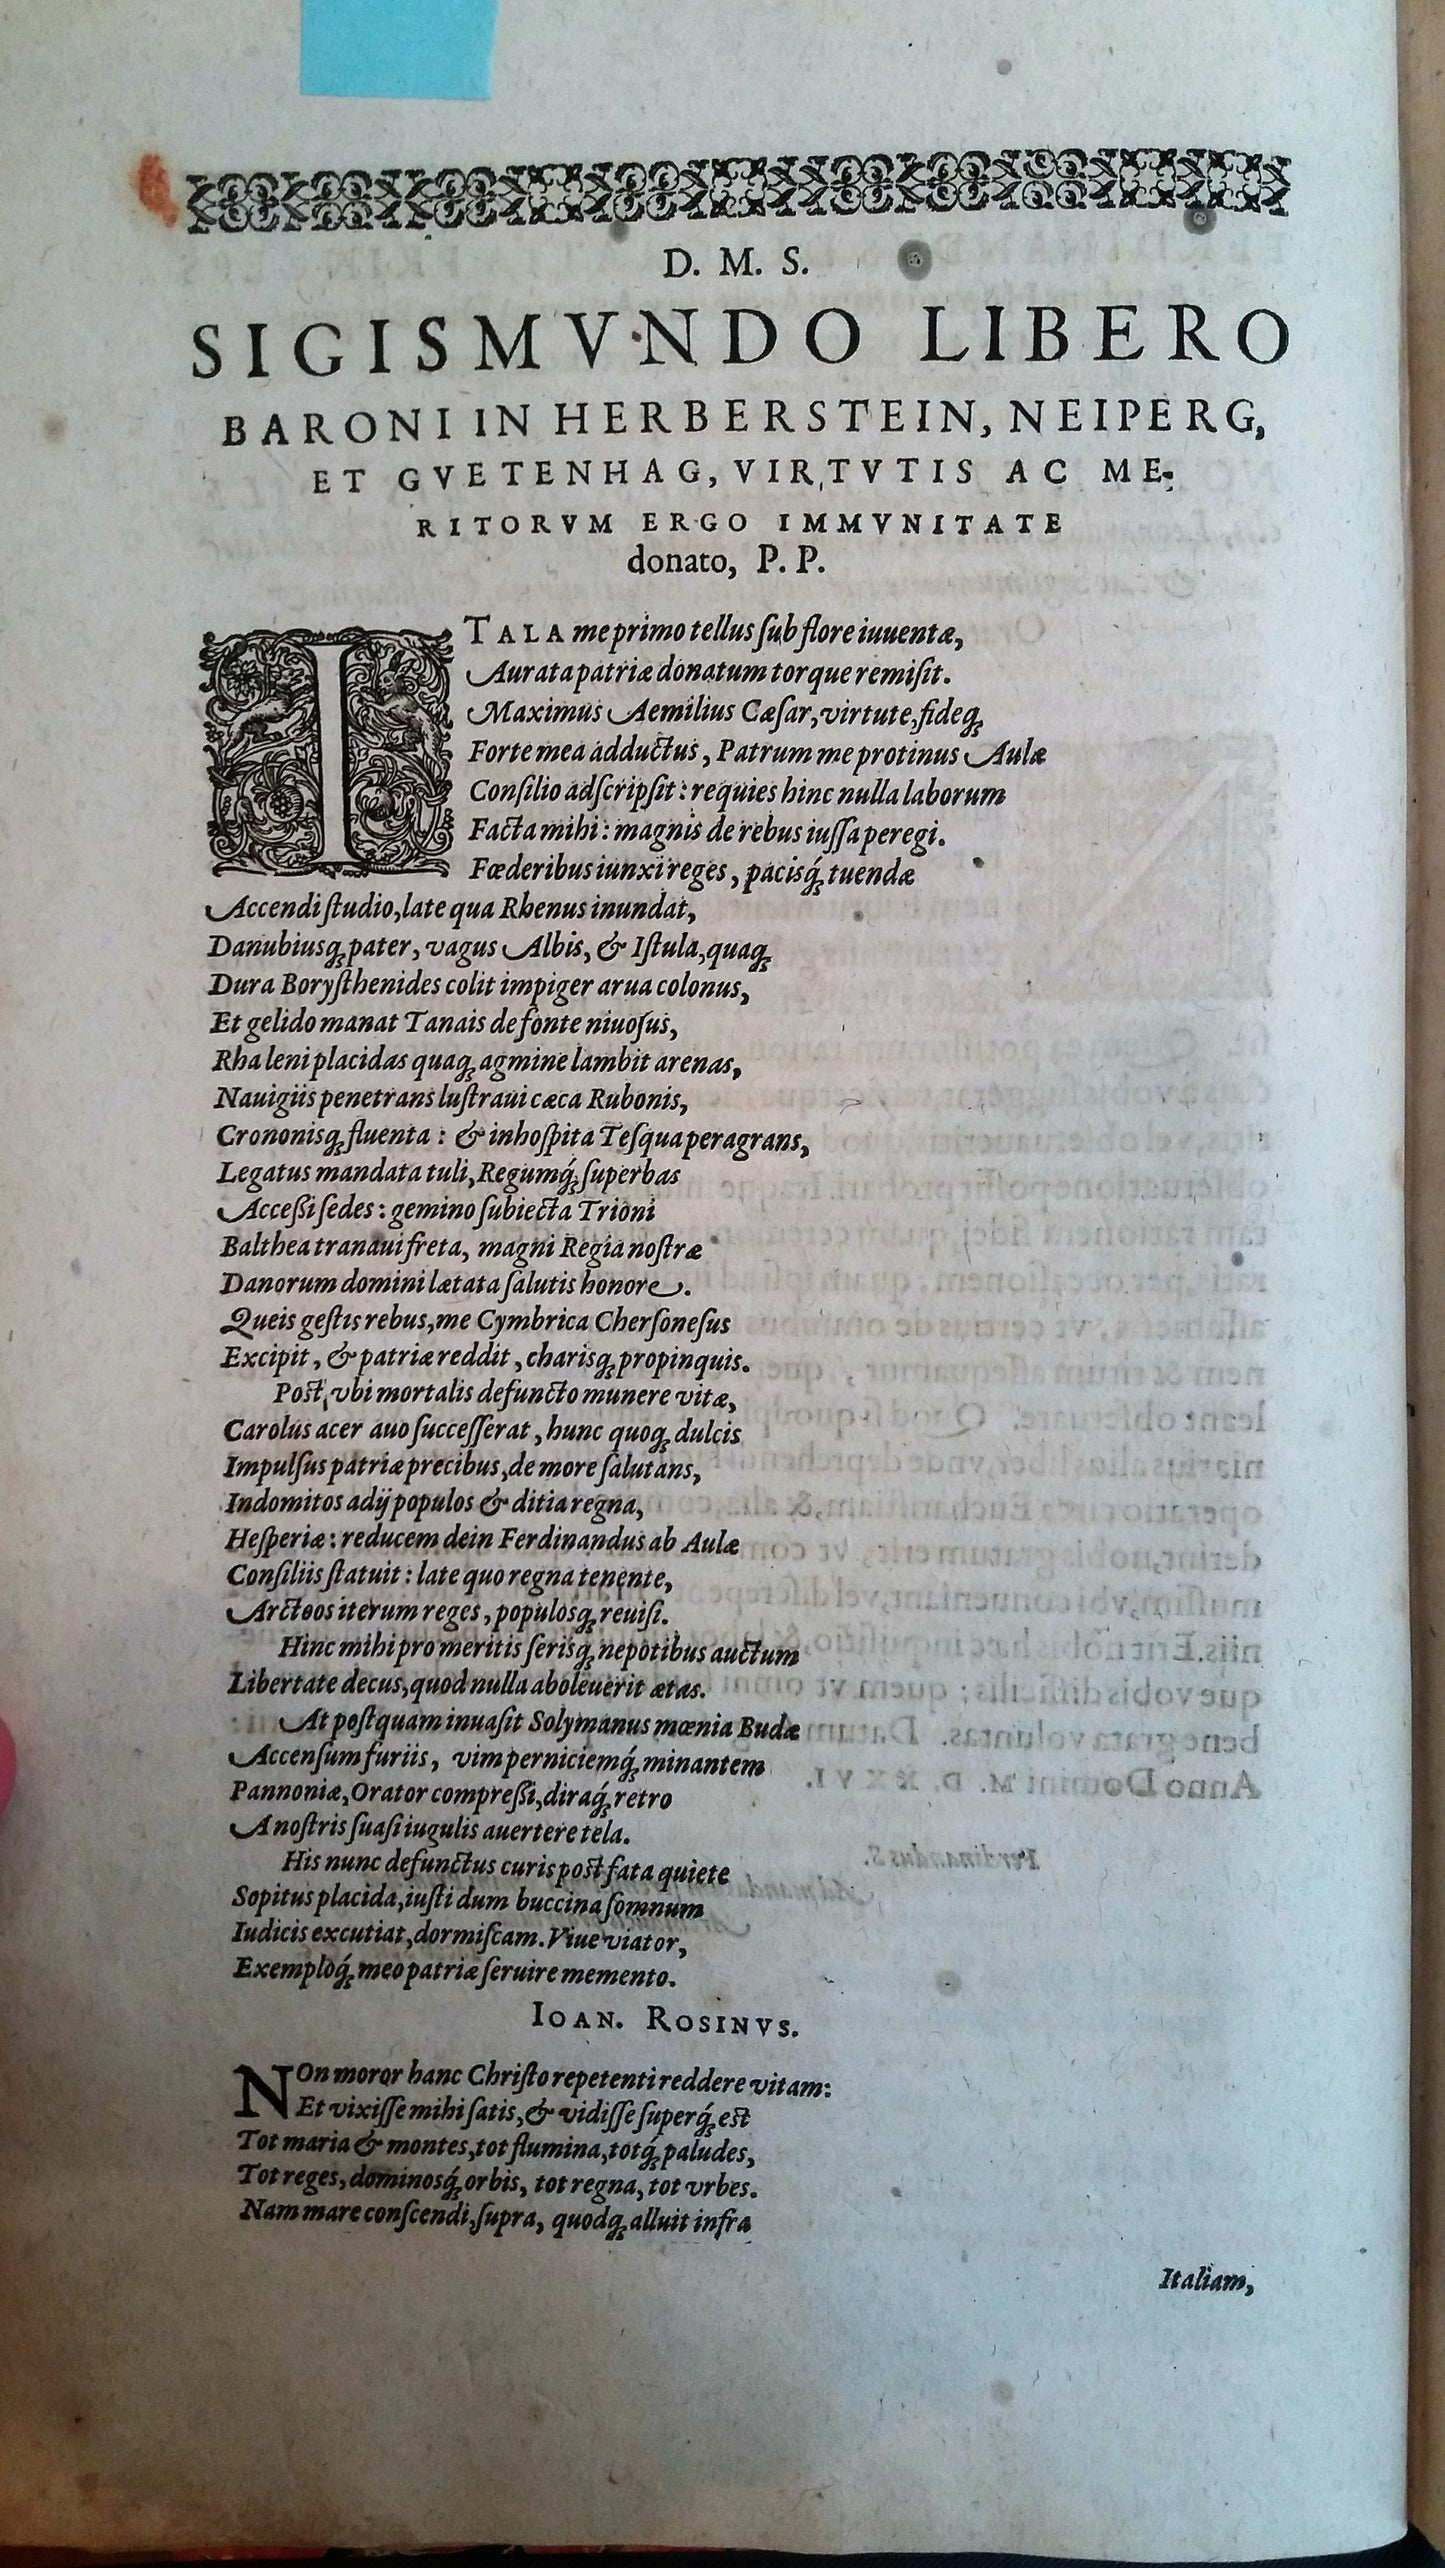 D. M. S.
SIGISMVNDO LIBERO
BARONI IN HERBERSTEIN, NEIPERG,
ET GVETENHAG, VIRTVTIS AC ME-
RITORVM ERGO IMMVNITATE
donato, P. P.
ITALA me primo tellus ſub flore iuuentæ,
Aurata patriæ donatum torque remiſit.
Maximus Aemilius Cæſar, virtute, fideq́;
Forte mea adductus, Patrum me protinus Aulæ
Conſilio adſcripſit: requies hinc nulla laborum
Facta mihi: magnis de rebus iuſſa peregi.
Fœderibus iunxi reges, pacisq́; tuendæ
Accendi ſtudio, late qua Rhenus inundat,
Danubiusq; pater, vagus Albis, & Iſtula, quaq;
Dura Boryſthenides colit impiger arua colonus,
Et gelido manat Tanais de fonte niuoſus,
Rha leni placidas quaq; agmine lambit arenas,
Nauigiis penetrans luſtraui cæca Rubonis,
Crononisq; fluenta: & inhoſpita Teſqua peragrans,
Legatus mandata tuli, Regumq́; ſuperbas
Acceſſi ſedes: gemino ſubiecta Trioni
Balthea tranaui freta, magni Regia noſtræ
Danorum domini lætata ſalutis honore.
Queis geſtis rebus, me Cymbrica Cherſoneſus
Excipit, & patriæ reddit, charisq; propinquis.
Poſt, vbi mortalis defuncto munere vitæ,
Carolus acer auo ſucceſſerat, hunc quoq; dulcis
Impulſus patriæ precibus, de more ſalutans,
Indomitos adij populos & ditia regna,
Heſperiæ: reducem dein Ferdinandus ab Aulæ
Conſiliis ſtatuit: late quo regna tenente,
Arctoos iterum reges, populosq; reuiſi.
Hinc mihi pro meritis ſerisq; nepotibus auctum
Libertate decus, quod nulla aboleuerit ætas.
At poſtquam inuaſit Solymanus mœnia Budæ
Accenſum furiis, vim perniciemq́; minantem
Pannoniæ, Orator compreſſi, diraq́; retro
A noſtris ſuaſi iugulis auertere tela.
His nunc defunctus curis poſt fata quiete
Sopitus placida, iuſti dum buccina ſomnum
Iudicis excutiat, dormiſcam. Viue viator,
Exemploq́; meo patriæ ſeruire memento.
IOAN. ROSINVS.
NOn moror hanc Chriſto repetenti reddere vitam:
Et vixiſſe mihi ſatis, & vidiſſe ſuperq́; eſt
Tot maria & montes, tot flumina, totq́; paludes,
Tot reges, dominosq́; orbis, tot regna, tot vrbes.
Nam mare conſcendi, ſupra, quodq; alluit infra
Italiam,